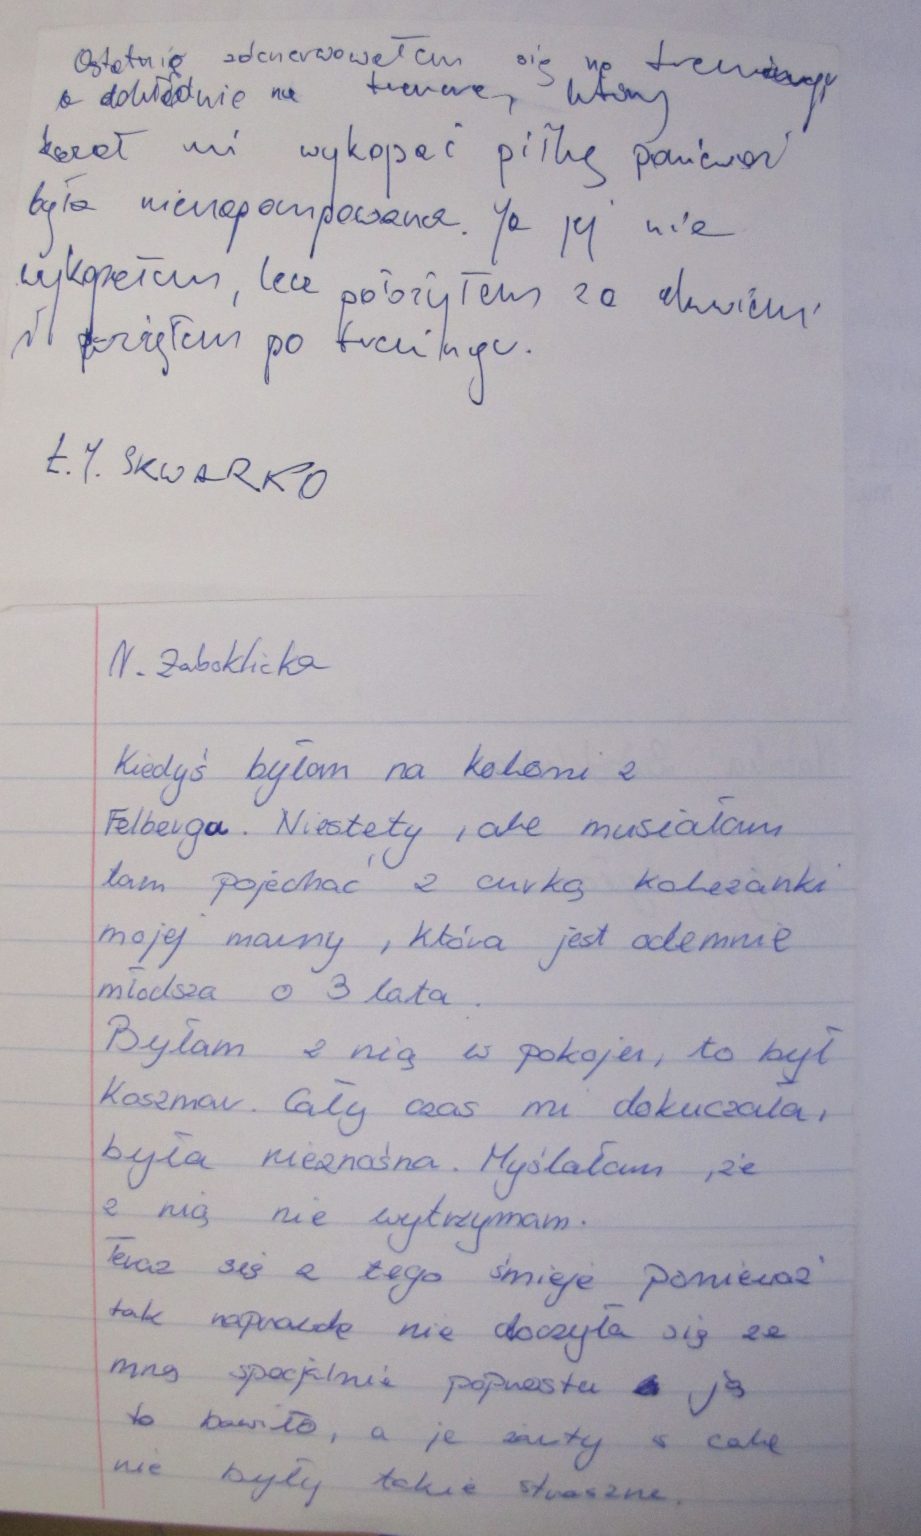 Ostatnio zdenerwowałem się na treningu
a dokładnie na trenera, który
kazał mi wykopać piłkę ponieważ
była nienapompowana. Ja jej nie
wykopałem, lecz położyłem za drzwiami
i wziąłem po treningu.
Ł.J. SKWARKO
N. Zaboklicka
Kiedyś byłam na koloni z
Felberga. Niestety, ale musiałam
tam pojechać z curką koleżanki
mojej mamy, która jest odemnie
młodsza o 3 lata.
Byłam z nią w pokoju, to był
koszmar. Cały czas mi dokuczała,
była nieznośna. Myślałam, że
z nią nie wytrzymam.
Teraz się z tego śmieje ponieważ
tak naprawdę nie się ze
mną specjalnie poprostu ją
to bawiło, a jej żarty wcale
nie były takie straszne.